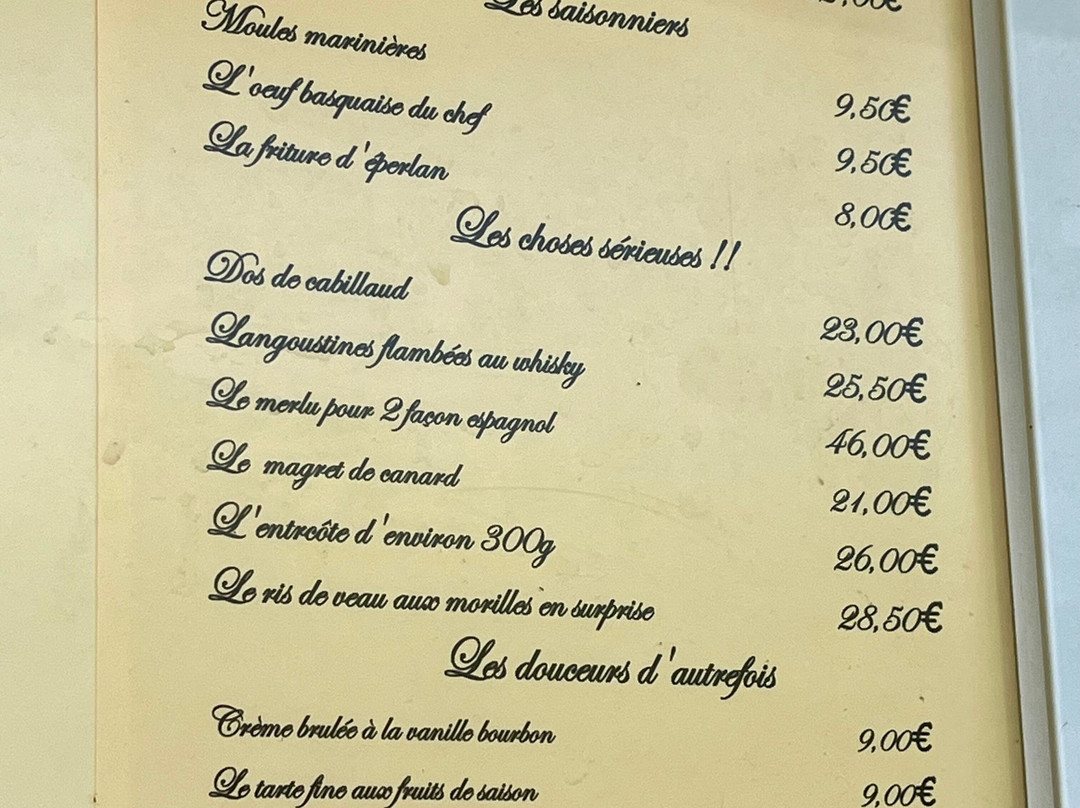 Les saisonniers
Moules marinières 9,50€
L'oeuf basquaise du chef 9,50€
La friture d'éperlan 8,00€
Les choses sérieuses !!
Dos de cabillaud 23,00€
Langoustines flambées au whisky 25,50€
Le merlu pour 2 façon espagnol 46,00€
Le magret de canard 21,00€
L'entrcôte d'environ 300g 26,00€
Le ris de veau aux morilles en surprise 28,50€
Les douceurs d'autrefois
Crème brulée à la vanille bourbon 9,00€
Le tarte fine aux fruits de saison 9,00€